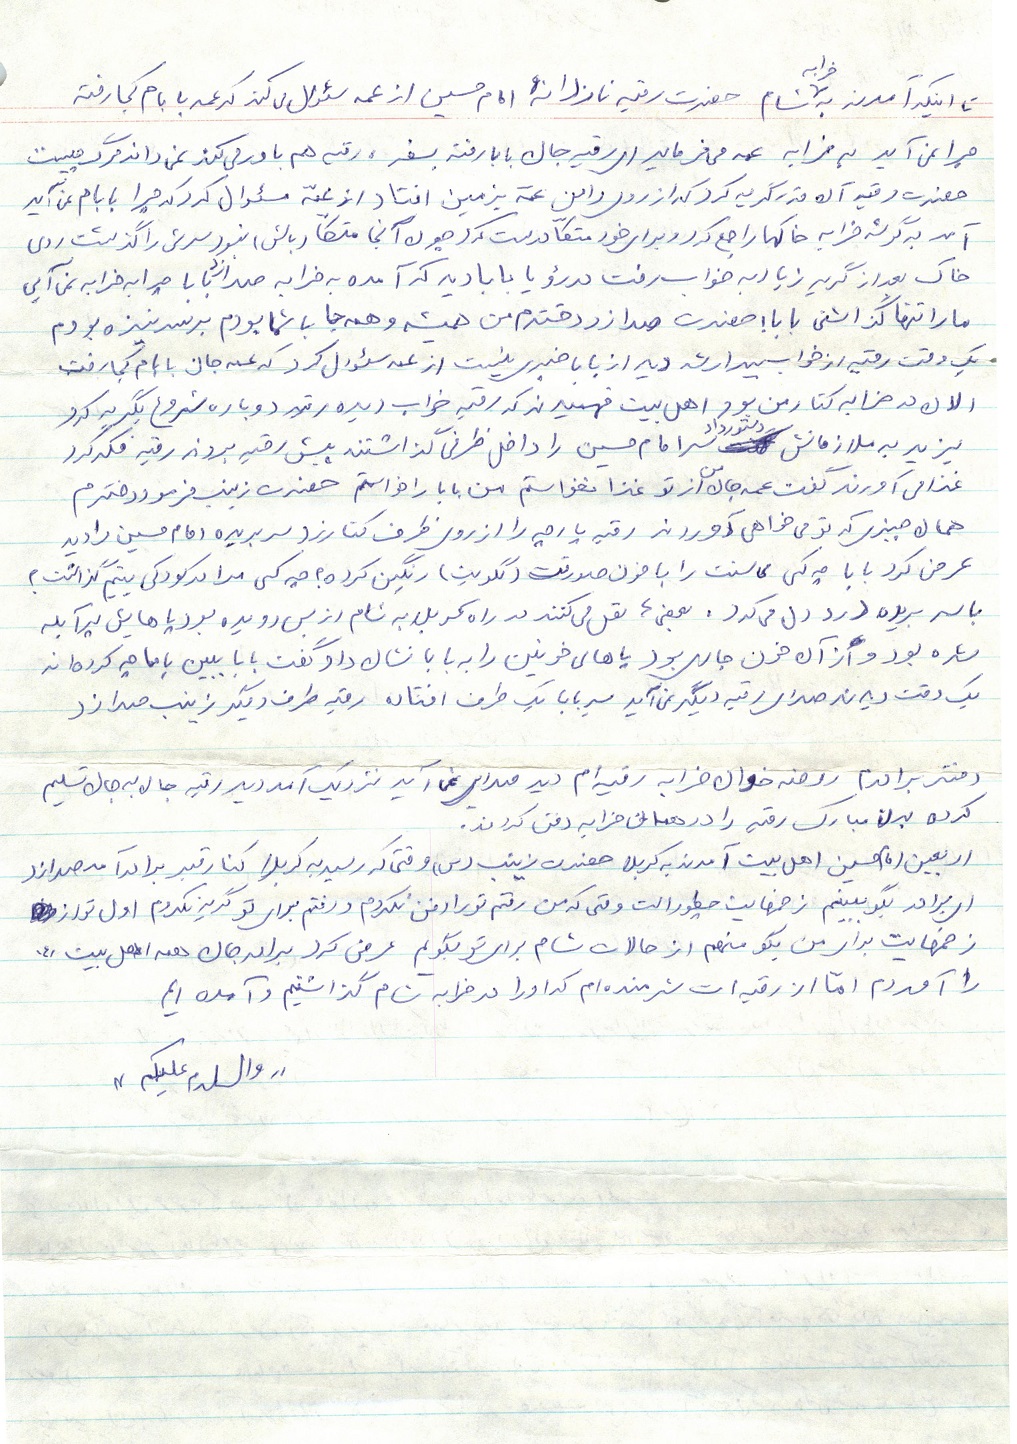 تا اینکه آمدند به خرابه شام حضرت رقیه نازدانهٔ امام حسین از عمه سئوال می کند که عمه بابام کجا رفته
چرا نمی آید به خرابه عمه می فرماید ای رقیه جان بابا رفته بسفر ، رقیه هم باور می کند نمی داند مرگ چیست
حضرت رقیه آن قدر گریه کرد که از روی دامن عمّه بزمین افتاد از عمّه سئوال کرد که چرا بابام نمی آید
آمد به گوشه خرابه خاکها را جمع کرد و برای خود متکّا درست کرد چون آنجا متکّا (بالش) نبود سرش را گذشت روی
خاک بعد از گریه زیاد به خواب رفت در رؤیا بابا دید که آمده به خرابه صدا زد بابا چرا به خرابه نمی آیی
ما را تنها گذاشتی بابا! حضرت صدا زد دخترم من همیشه و همه جا با شما بودم بر سر نیزه بودم
یک وقت رقیه از خواب بیدار شد دید از بابا خبری نیست از عمه سئوال کرد که عمه جان بابام کجا رفت
الان در خرابه کنار من بود اهل بیت فهمیدند که رقیه خواب دیده رقیه دوباره شروع بگریه کرد
یزید به ملازمانش دستور داد سر امام حسین را داخل ظرفی گذاشتند پیش رقیه بردند رقیه فکر کرد
غذا می آورند گفت عمه جان من از تو غذا نخواستم من بابا را خواستم حضرت زینب فرمود دخترم
همان چیزی که تو می خواهی آوردند رقیه پارچه را از روی ظرف کنار زد سر بریده امام حسین را دید
عرض کرد بابا چه کسی محاسنت را با خون صورتت (گلویت) رنگین کرده؟ چه کسی مرا در کودکی یتیم گذاشت؟
با سر بریده درد دل می کرد ، بعضی ها نقل می کنند در راه کربلا به شام از بس دویده بود پاهایش پر آبله
شده بود و از آن خون جاری بود پاهای خونین را به بابا نشان داد و گفت بابا ببین پاهام چه کرده اند
یک وقت دیدند صدای رقیه دیگر نمی آید سر بابا یک طرف افتاده رقیه طرف دیگر زینب صدا زد
دختر برادرم روضه خوان خرابه رقیه ام دید صدایی نمی آید نزدیک آمد دید رقیه جان به جان تسلیم
کرده بدن مبارک رقیه را در همان خرابه دفن کردند.
اربعین امام حسین اهل بیت آمدند به کربلا حضرت زینب (س) وقتی که رسید به کربلا کنار قبر برادر آمد صدا زد
ای برادر بگو ببینم زخمهایت چطور است وقتی که من رفتم تو را دفن نکردم و رفتم برای تو گریه نکردم اول تو از
زخمهایت برای من بگو منهم از حالات شام برای تو بگویم عرض کرد برادر جان همه اهل بیت
را آوردم امّا از رقیه ات شرمنده ام که او را در خرابه شام گذاشتیم و آمده ایم
،، والسلام علیکم ،،